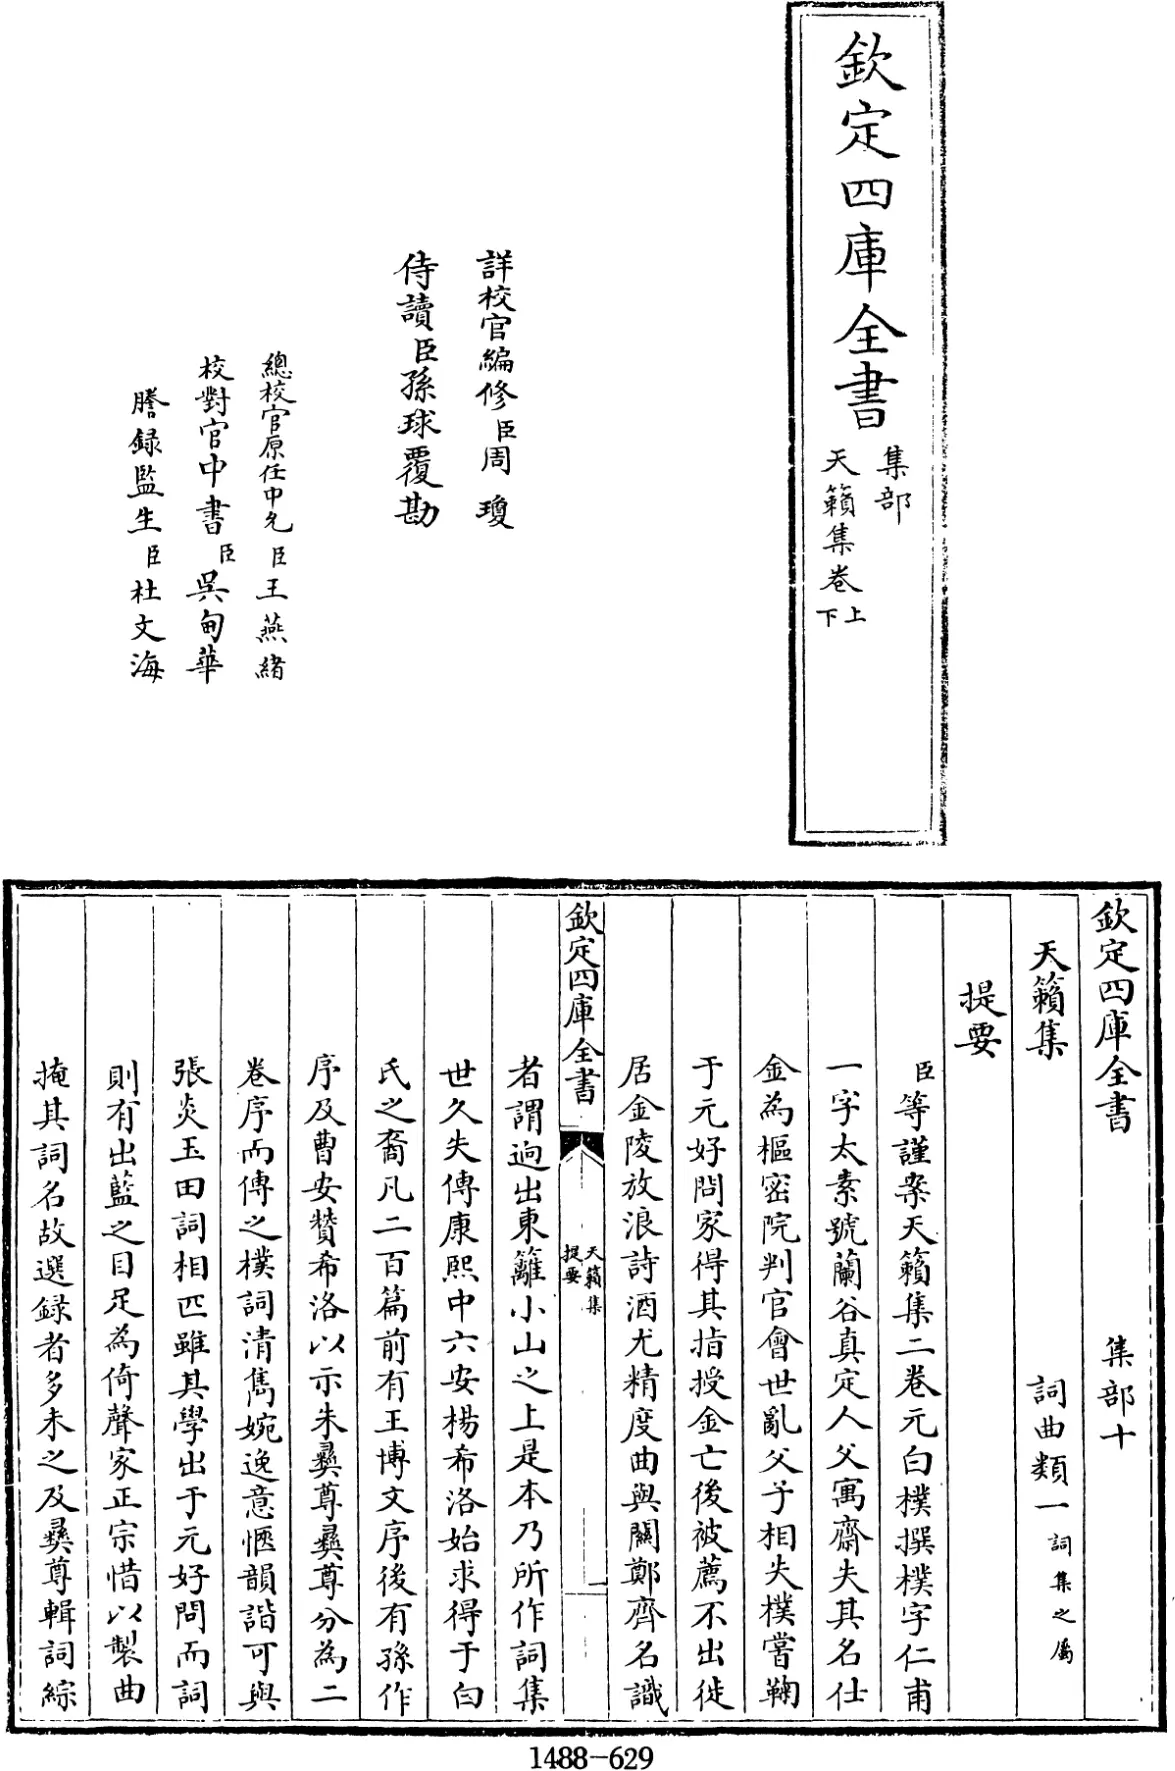 欽定四庫全書
集部
天籟集卷上下
詳校官編修臣周瓊
侍讀臣孫球覆勘
總校官原任中允臣王燕緒
校對官中書臣吳甸華
謄録監生臣杜文海
欽定四庫全書 集部十
天籟集 詞曲類一詞集之屬
提要
臣等謹案天籟集二卷元白樸撰樸字仁甫
一字太素號蘭谷真定人父寓齋失其名仕
金為樞密院判官會世亂父子相失樸嘗鞠
于元好問家得其指授金亡後被薦不出徙
居金陵放浪詩酒尤精度曲與關鄭齊名識
欽定四庫全書
天籟集
提要
者謂逈出東籬小山之上是本乃所作詞集
世久失傳康熙中六安楊希洛始求得于白
氏之裔凡二百篇前有王博文序後有孫作
序及曹安贊希洛以示朱彞尊彞尊分為二
卷序而傳之樸詞清雋婉逸意愜韻諧可與
張炎玉田詞相匹雖其學出于元好問而詞
則有出藍之目足為倚聲家正宗惜以製曲
掩其詞名故選録者多未之及彞尊輯詞綜
1488-629